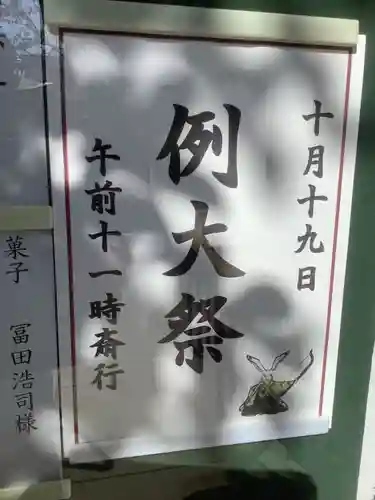 十月十九日
例大祭
午前十一時斎行
菓子 冨田浩司様